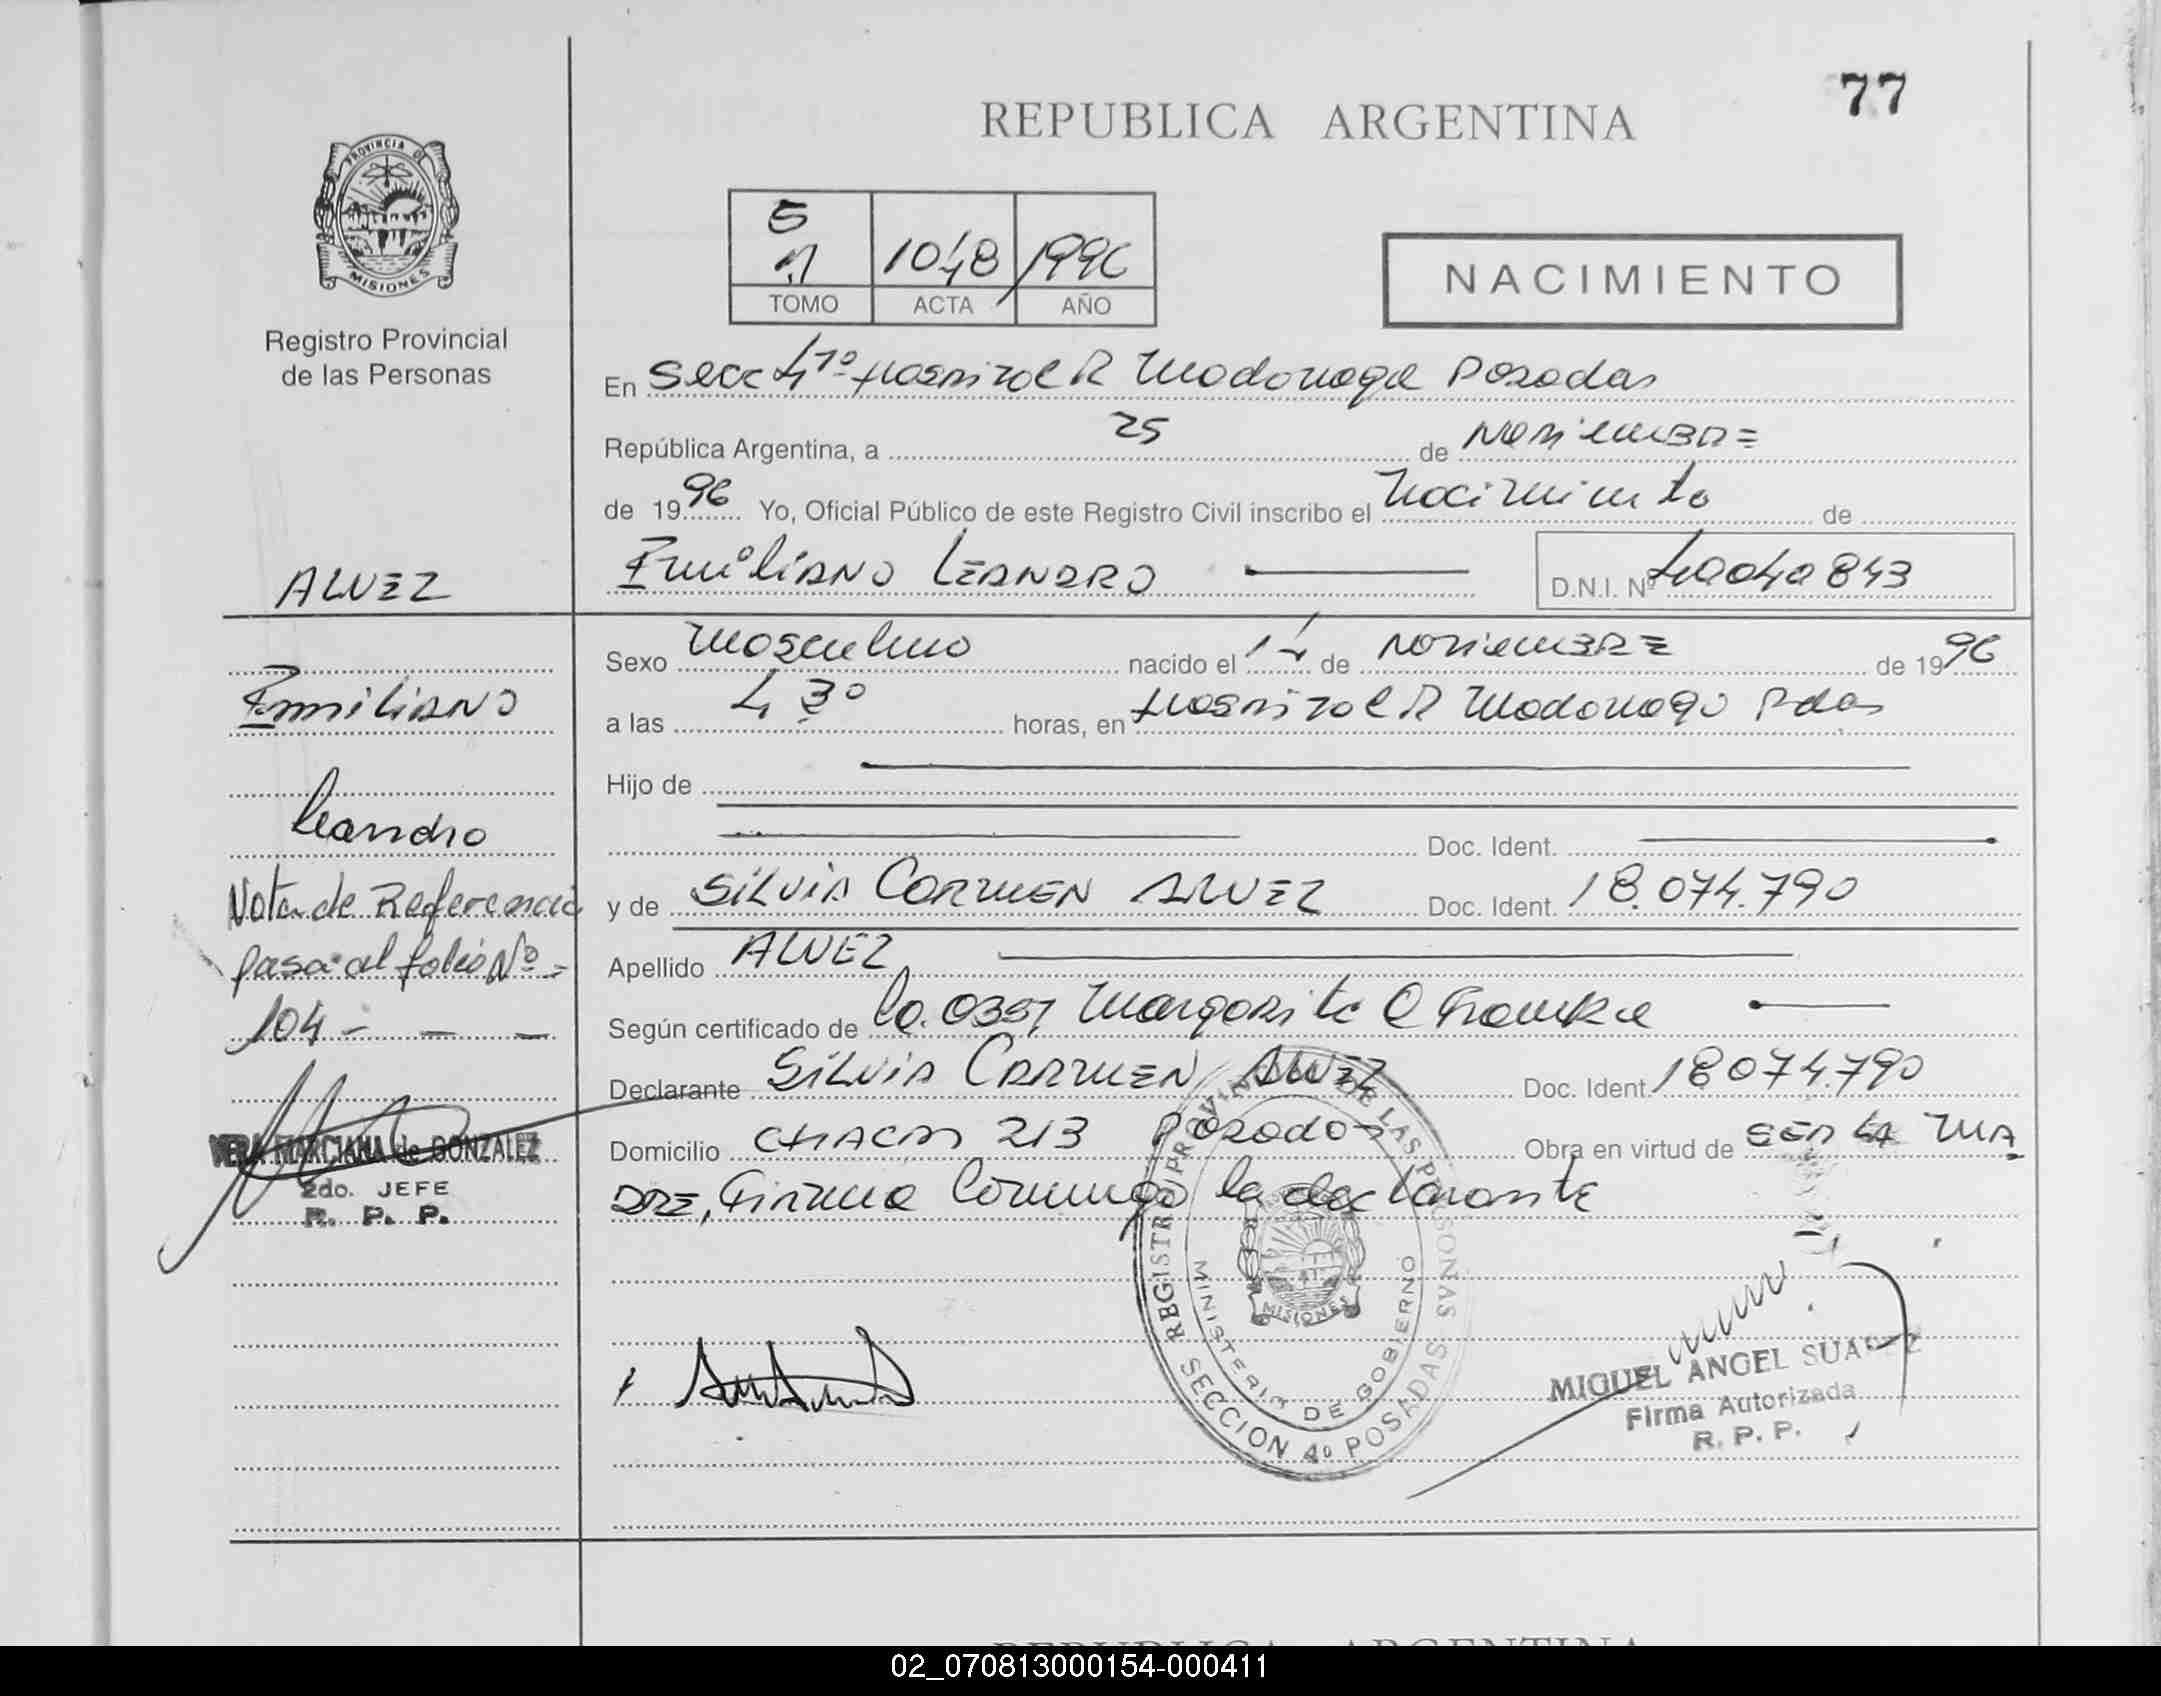 77
REPUBLICA ARGENTINA
PROVINCIA DE
MISIONES
Registro Provincial
de las Personas
5
1 1048 1996
TOMO ACTA AÑO
NACIMIENTO
En Secc 4ta Hospital R Madariaga Posadas
República Argentina, a 25 de Noviembre
de 1996 Yo, Oficial Público de este Registro Civil inscribo el Nacimiento de
ALVEZ
Emiliano Leandro D.N.I. Nº 40042843
Emiliano
Leandro
Nota de Referencia
pasa al folio Nº
104 - - -
VERA MARCIANA de GONZALEZ
2do. JEFE
R. P. P.
Sexo Masculino nacido el 14 de Noviembre de 1996
a las 4 30 horas, en Hospital R Madariaga Pdas
Hijo de
Doc. Ident.
y de Silvia Carmen Alvez Doc. Ident. 18.074.790
Apellido ALVEZ
Según certificado de la Margarita
Declarante Silvia Carmen Alvez Doc. Ident. 18074.790
Domicilio CHACRA 213 Posadas Obra en virtud de SER LA MA
DRE, Firma Conmigo la declarante
REGISTRO PROVINCIAL DE LAS PERSONAS
MINISTERIO DE GOBIERNO
MISIONES
SECCION 4º POSADAS
MIGUEL ANGEL SUAREZ
Firma Autorizada
R. P. P.
REPUBLICA ARGENTINA
02_070813000154-000411